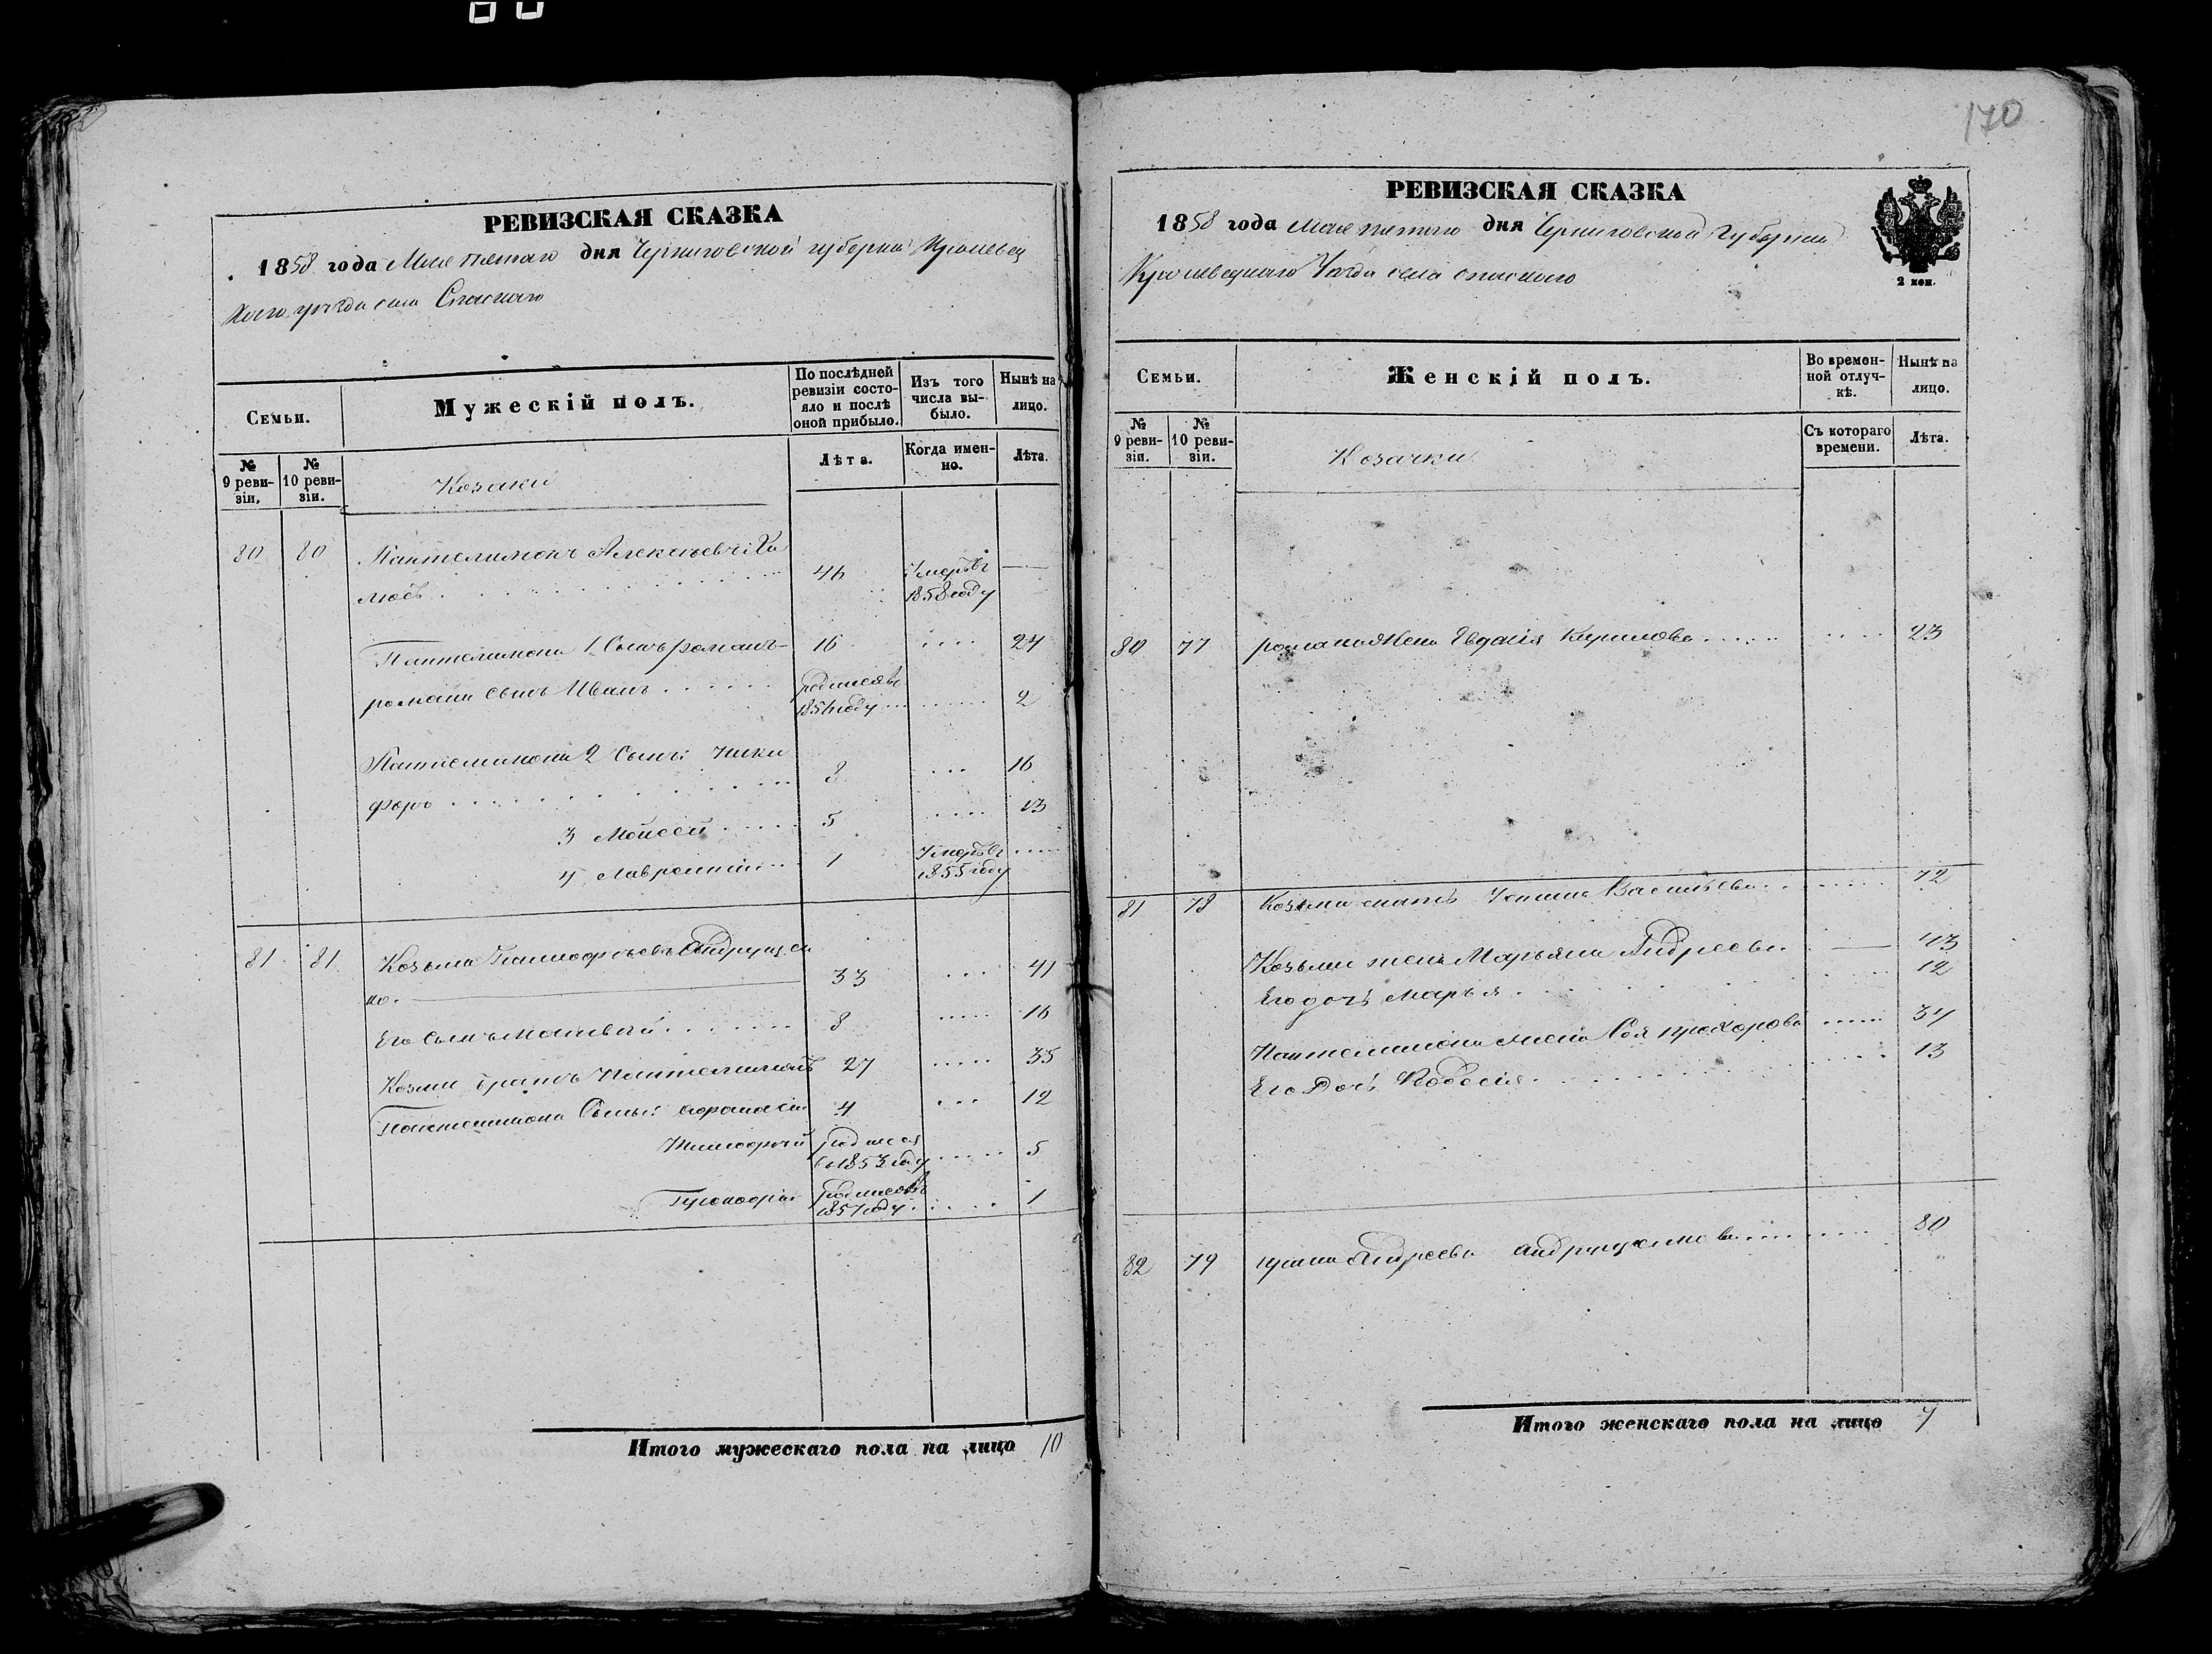 170
РЕВИЗСКАЯ СКАЗКА
1858 года Мая пятаго дня Черниговской губерніи Кролевец
каго уѣзда села Спаскаго
Семьи.
Мужескій полъ.
По послѣдней ревизіи состояло и послѣ оной прибыло.
Изъ того числа выбыло.
Нынѣ на лицо.
№ 9 ревизіи.
№ 10 ревизіи.
Козаки
Лѣта.
Когда именно.
Лѣта.
80 80 Пантелимонъ Алексѣевъ
46 Умеръ въ 1858 году —
Пантелимона 1 Сынъ романъ 16 .... 24
романа сынъ Иванъ ...... родился въ 1856 году ...... 2
Пантелимона 2 Сынъ Ники
форъ ...... 8 ... 16
3 Моисей ..... 5 .... 13
4 Лаврентій ... 1 Умеръ въ 1855 году ....
81 81 Козьма Тимофѣевъ Андрущен
ко. 33 .... 41
Его Сынъ Матвѣй ....... 8 ..... 16
Козми братъ Пантелимонъ 27 ..... 35
Пантелимона Сыны: Афанасій 4 ... 12
Тимофѣй родился въ 1853 году ..... 5
родился въ 1857 году ..... 1
Итого мужескаго пола на лицо 10
РЕВИЗСКАЯ СКАЗКА
1858 года Мая пятаго дня Черниговской Губерніи
Кролевецкаго Уѣзда села спаского
2 коп.
Семьи.
Женскій полъ.
Во временной отлучкѣ.
Нынѣ на лицо.
№ 9 ревизіи.
№ 10 ревизіи.
Козачки
Съ котораго времени.
Лѣта.
80 77 романа жена Евдокія Кирилова ...... ..... 23
81 78 Козьми мать Васильева ...... 72
Козьми жена Марьяна Андреева — 43
Его дочь Марья ...... 12
Пантелимона жена прохорова ..... 34
Его Дочь Федосія ...... 13
82 79 Андреева андрущенкова ...... 80
Итого женскаго пола на лицо 7